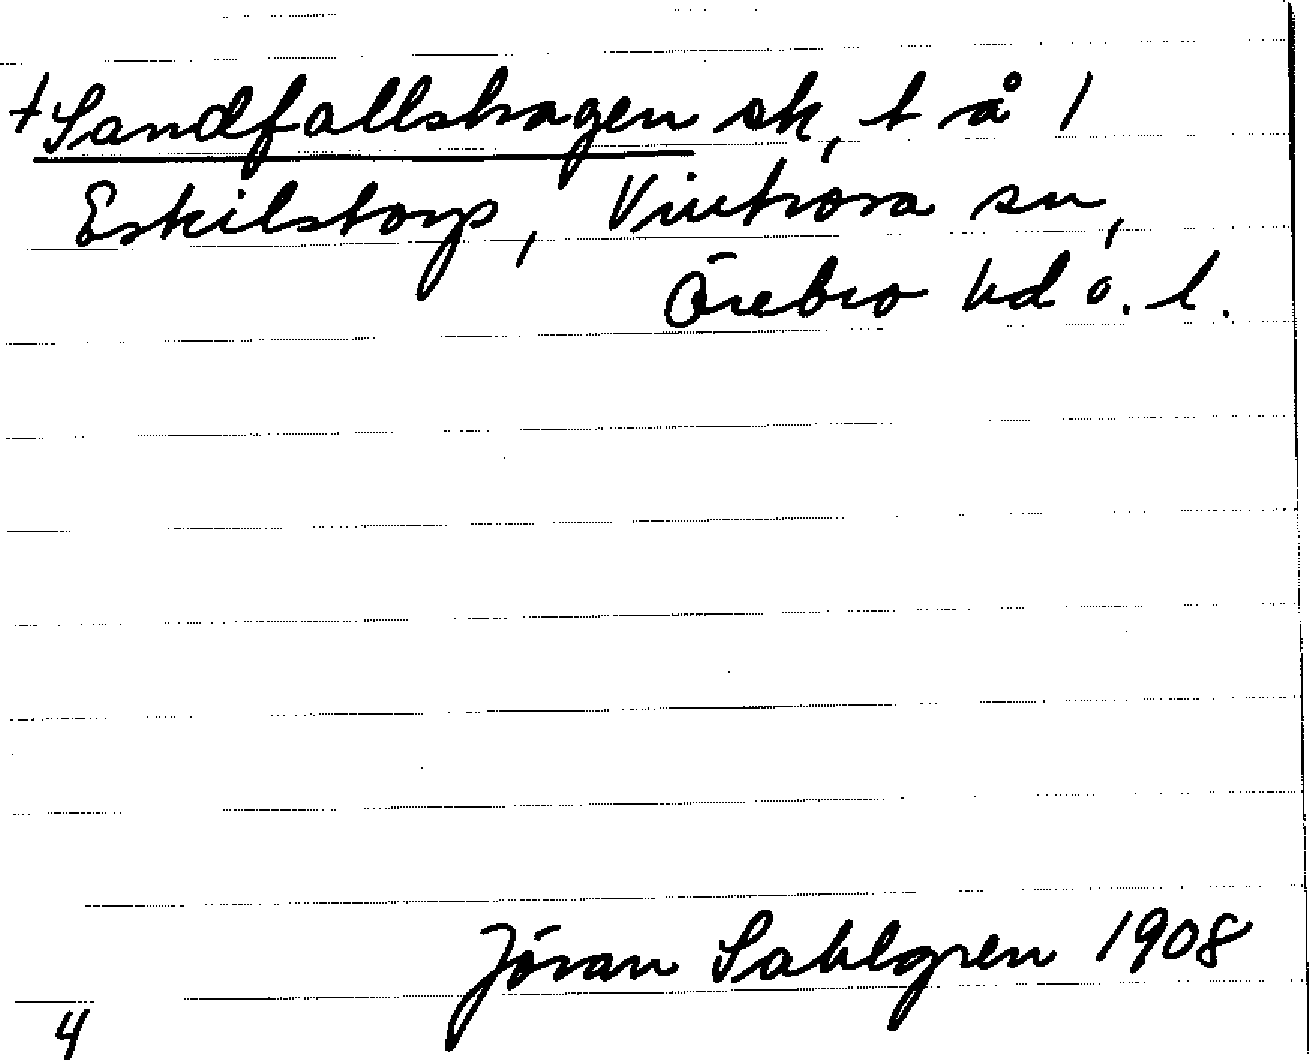 +Sandfallshagen sk, t å 1
Eskilstorp, Vintrosa sn,
Örebro hd ö. l.
Jöran Sahlgren 1908
4